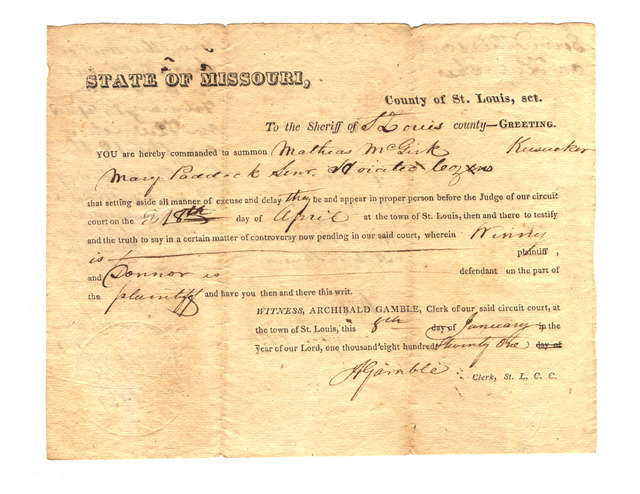 STATE OF MISSOURI,
County of St. Louis, sct.
To the Sheriff of St Louis county—GREETING.
YOU are hereby commanded to summon Mathias McGirk
Mary Paddock Senr. Horatio Cozens
that setting aside all manner of excuse and delay they be and appear in proper person before the Judge of our circuit
court on the 18th day of April at the town of St. Louis, then and there to testify
and the truth to say in a certain matter of controversy now pending in our said court, wherein Winny
is plaintiff,
and Donnor is defendant on the part of
the plaintiff and have you then and there this writ.
WITNESS, ARCHIBALD GAMBLE, Clerk of our said circuit court, at
the town of St. Louis, this 8th day of January in the
year of our Lord, one thousand eight hundred twenty one day of
AGamble Clerk, St. L. C. C.